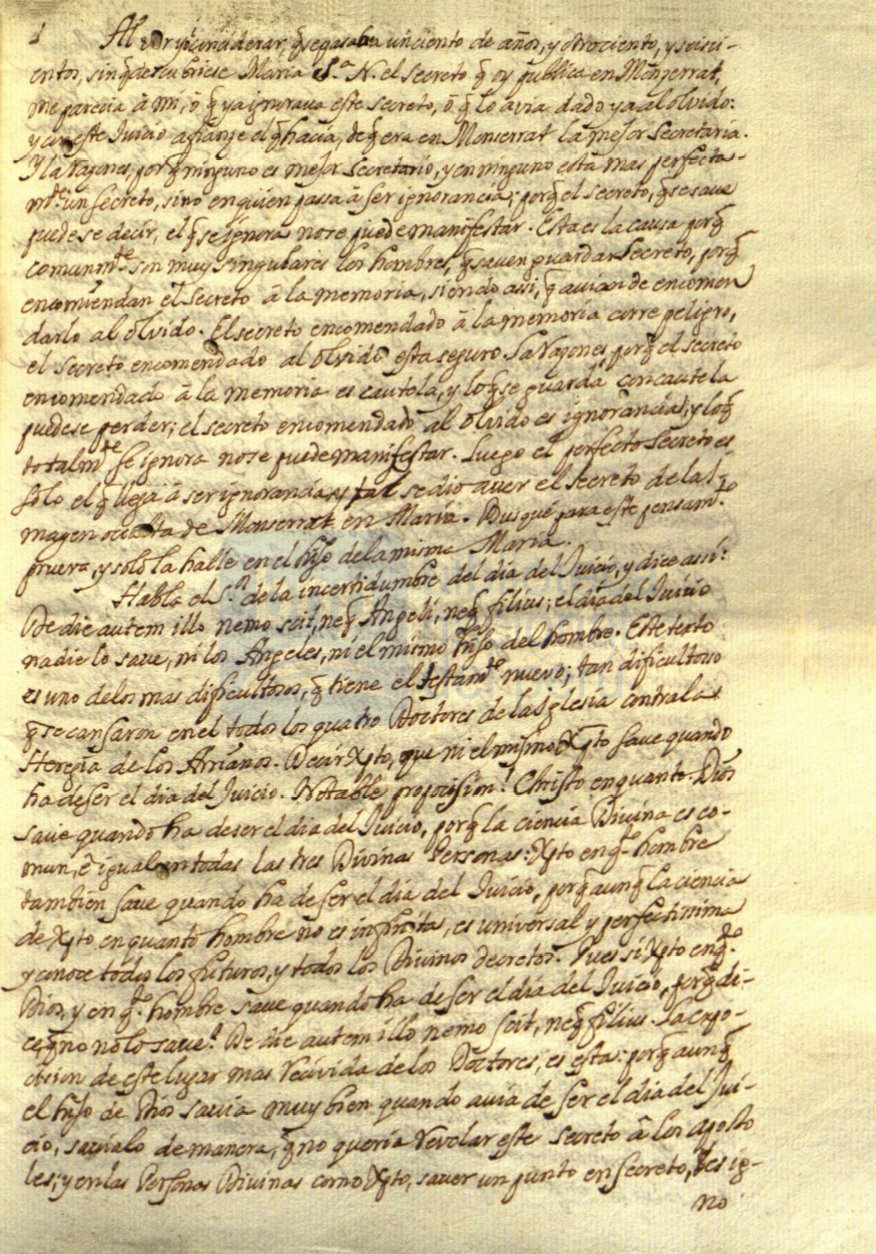 1 Al ver yo, considerar, q̃ se pasaba un ciento de años, y otro ciento, y seisci-
entos, sin q̃ descubriese Maria S.ª N. el secreto q̃ oy publica en Monserrat,
me parecia à mi, ó q̃ ya ignoraua este secreto, ò q̃ lo avia dado ya al olvido:
y con este Juicio el q̃ hacia, de q̃ era en Monserrat la mejor Secretaria.
Y la raçon es, porq̃ ninguno es mejor Secretario, y en ninguno està mas perfecta-
m.te un secreto, sino en quien passa à ser ignorancia; porq̃ el secreto, q̃ se save
puedese decir, el q̃ se ignora no se puede manifestar. Esta es la causa porq̃
comunm.te son muy singulares los hombres, q̃ saven guardar secreto, porq̃
encomiendan el secreto à la memoria, siendo assi, q̃ avian de encomen
darlo al olvido. El secreto encomendado à la memoria corre peligro,
el secreto encomendado al olvido esta seguro. La raçon es, porq̃ el secreto
encomendado à la memoria es cautela, y lo q̃ se guarda con cautela
puedese perder; el secreto encomendado al olvido es ignorancia; y lo q̃
totalm.te se ignora no se puede manifestar. Luego el perfecto secreto es
solo el q̃ llega à ser ignorancia, y tal se dio a ver el secreto de la I-
magen occulta de Monserrat en Maria. Busquè para este pensam.to
prueva, y solo la halle en el hijo de la misma Maria.
Habla el S.r de la incertidumbre del dia del Juicio, y dice assi:
De die autem illo nemo scit, neq̃ Angeli, neq̃ filius; el dia del Juicio
nadie lo save, ni los Angeles, ni el mismo hijo del hombre. Este texto
es uno de los mas dificultosos, q̃ tiene el testam.to nuevo; tan dificultoso
q̃ se cansaron en el todos los quatro Doctores de la Iglesia contra la
Heregia de los Arrianos. Decir Xp̃to, que ni el mismo Xp̃to save quando
ha de ser el dia del Juicio. Notable proposision! Christo en quanto Dios
save quando ha de ser el dia del Juicio, porq̃ la ciencia Divina es co-
mun, è igual en todas las tres Divinas Personas: Xp̃to en q.to hombre
tambien save quando ha de ser el dia del Juicio, porq̃ aunq̃ la ciencia
de Xp̃to en quanto hombre no es infinita, es universal y perfectissima
y conoce todos los futuros, y todos los Divinos decretos. Pues si Xp̃to en q.to
Dios, y en q.to hombre save quando ha de ser el dia del Juicio, porq̃ di-
ce q̃ no lo save? De die autem illo nemo scit, neq̃ filius. La expo-
cision de este lugar mas recivida de los Doctores, es esta: porq̃ aunq̃
el hijo de Dios savia muy bien quando avia de ser el dia del Jui-
cio, savialo de manera, q̃ no queria revelar este secreto à los aposto
les; y en las Personas Divinas como Xp̃to, saver un punto en secreto, es ig-
no